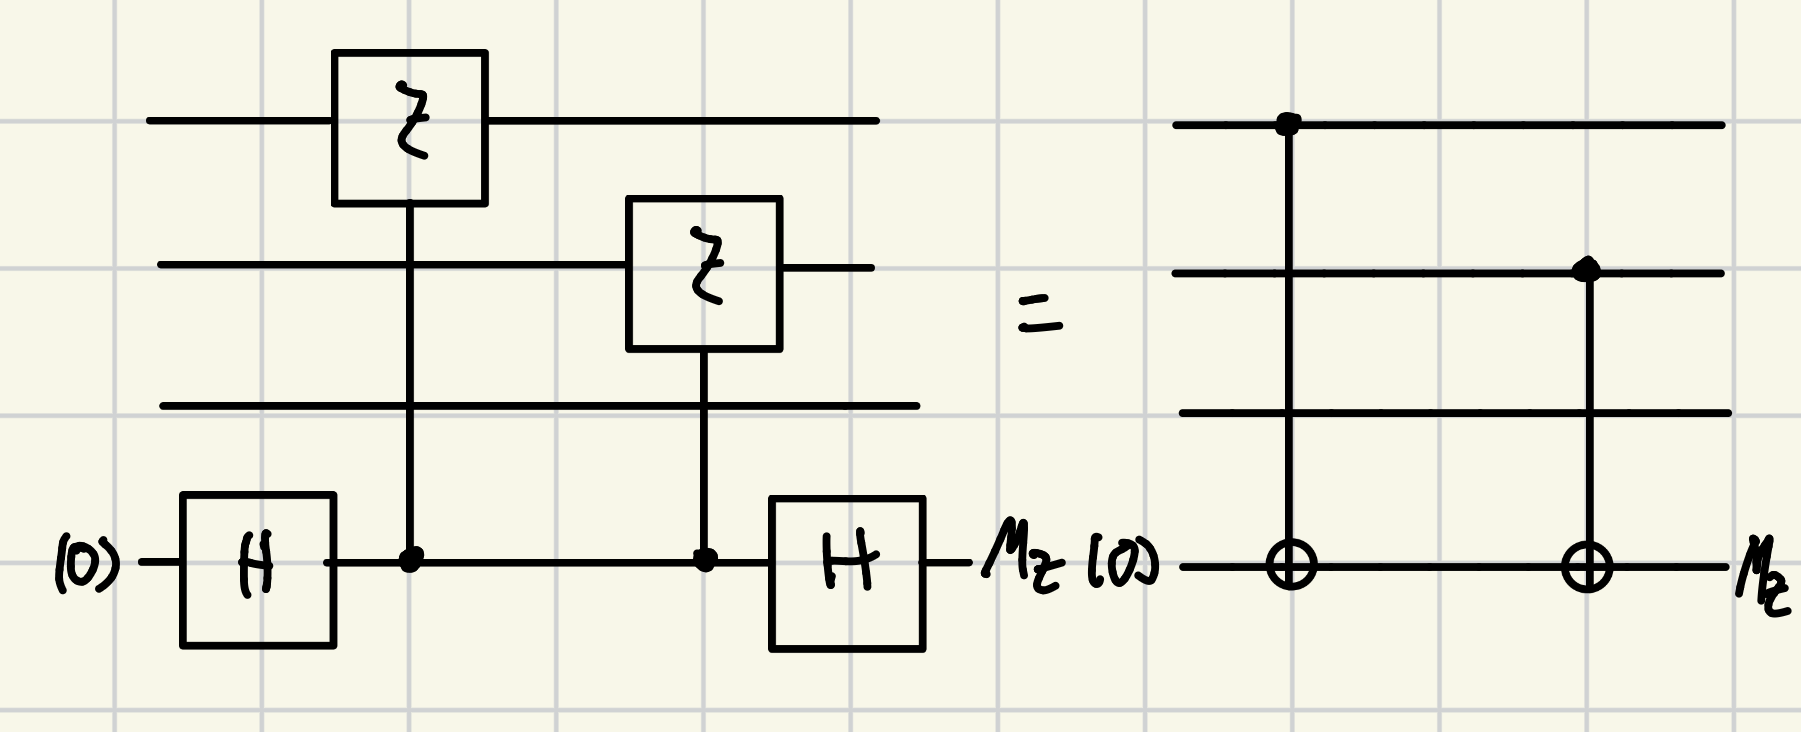 Z
Z
=
|0⟩ H H M_Z |0⟩ M_Z